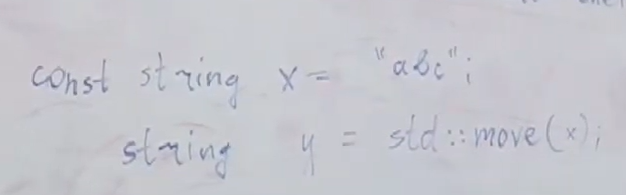 const string x = "abc";
string y = std::move(x);